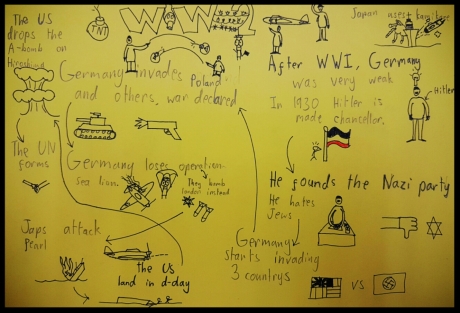 WW2
The US
drops the
A-bomb on
Hiroshima
TNT
Japan uses kamikaze
Germany invades Poland
and others, war declared
After WWI, Germany
was very weak
In 1930 Hitler is
made chancellor.
Hitler
The UN
forms
Germany loses operation
sea lion.
They bomb
london instead
He founds the Nazi party
He hates
Jews
Japs attack
Pearl
the US
land in d-day
Germany
starts invading
3 countrys
VS